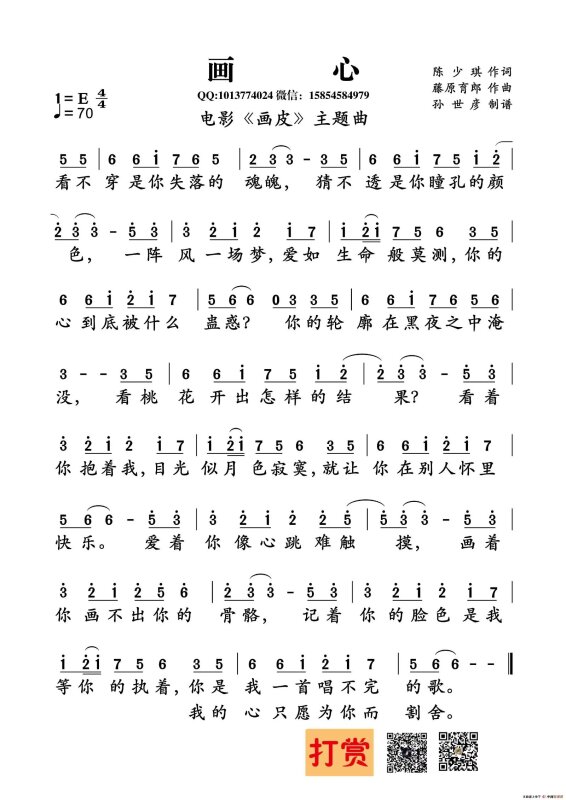 画 心
QQ:1013774024 微信：15854584979
电影《画皮》主题曲
陈少琪 作词
藤原育郎 作曲
孙世彦 制谱
1=E 4/4
♩=70
5 5 | 6 6 i 7 6 5 | 2 3 3 - 3 5 | 6 6 i 7 5 i 2 |
看不 穿是你失落的 魂魄， 猜不 透是你瞳孔的颜
2 3 3 - 5 3 | 3 2 i 2 i 7 | i 2 i 7 5 6 3 5 |
色， 一阵 风一场梦，爱如 生命般莫测，你的
6 6 i 2 i 7 | 5 6 6 0 3 3 5 | 6 6 i 7 6 5 6 |
心到底被什么 蛊惑？ 你的轮 廓在黑夜之中淹
3 - - 3 5 | 6 6 i 7 5 i 2 | 2 3 3 - 5 3 |
没， 看桃 花开出怎样的结 果？ 看着
3 2 i 2 i 7 | i 2 i 7 5 6 3 5 | 6 6 i 2 i 7 |
你抱着我，目光 似月色寂寞，就让 你在别人怀里
5 6 6 - 5 3 | 3 2 i 2 2 5 | 5 3 3 - 5 3 |
快乐。 爱着 你像心跳难触 摸， 画着
3 2 i 2 5 6 | 2 3 3 - 5 3 | 3 2 i 2 i 7 |
你画不出你的 骨骼， 记着 你的脸色是我
i 2 i 7 5 6 3 5 | 6 6 i 2 i 7 | 5 6 6 - - ‖
等你的执着，你是 我一首唱不完 的歌。
我的 心只愿为你而 割舍。
打赏